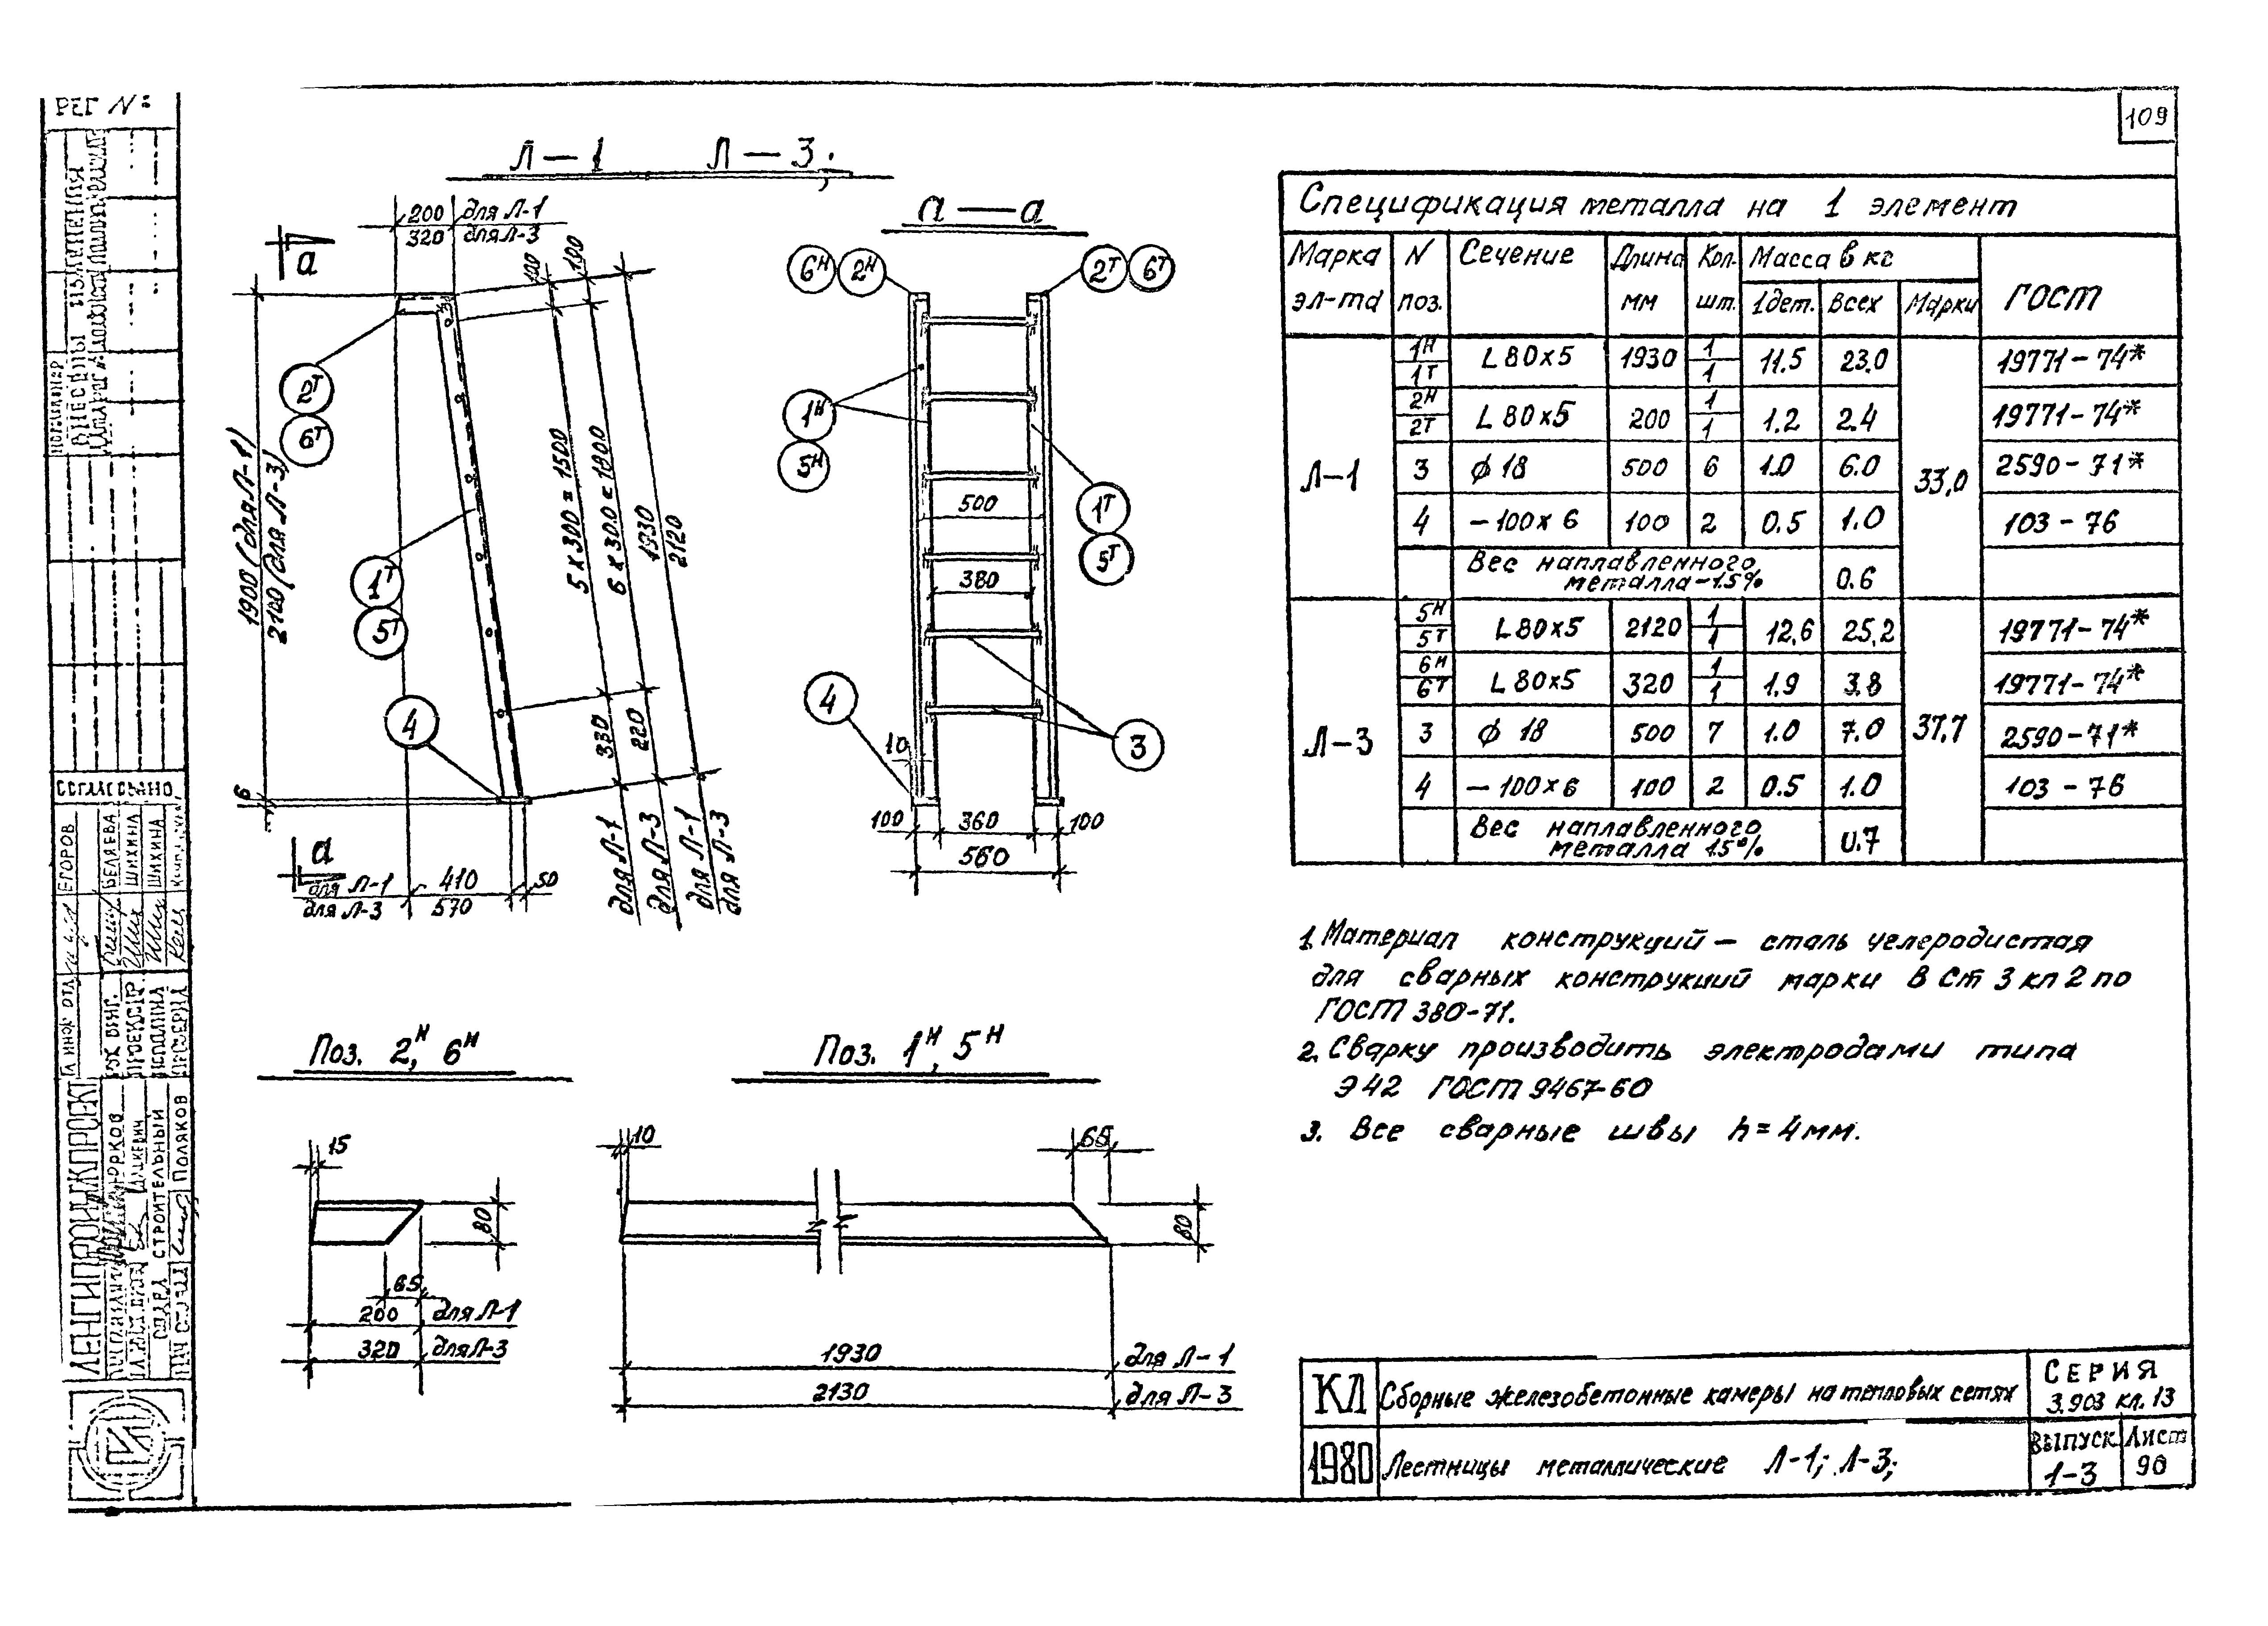 РЕГ №
109
Л—1 Л—3;
200 для Л-1
320 для Л-3
а
100
100
1900 (для Л-1)
2100 (для Л-3)
2Т
6Т
1Т
5Т
4
5 x 300 = 1500
6 x 300 = 1800
1930
2120
330
220
для Л-1
для Л-3
для Л-1
для Л-3
6
а
для Л-1 410 50
для Л-3 570
а—а
6Н 2Н 2Т 6Т
1Н
5Н
500
1Т
5Т
380
4
3
10
100 360 100
560
Спецификация металла на 1 элемент
Марка эл-та N поз. Сечение Длина мм Кол. шт. Масса в кг ГОСТ
1дет. Всех Марки
Л-1 1Н 1Т L 80x5 1930 1 1 11.5 23.0 33,0 19771-74*
2Н 2Т L 80x5 200 1 1 1.2 2.4 19771-74*
3 ϕ 18 500 6 1.0 6.0 2590-71*
4 -100x6 100 2 0.5 1.0 103-76
Вес наплавленного
металла-1.5% 0.6
Л-3 5Н 5Т L 80x5 2120 1 1 12,6 25,2 37,7 19771-74*
6Н 6Т L 80x5 320 1 1 1.9 3.8 19771-74*
3 ϕ 18 500 7 1.0 7.0 2590-71*
4 -100x6 100 2 0.5 1.0 103-76
Вес наплавленного
металла 1.5% 0.7
1. Материал конструкций — сталь углеродистая
для сварных конструкций марки В Ст 3 кп 2 по
ГОСТ 380-71.
2. Сварку производить электродами типа
Э42 ГОСТ 9467-60
3. Все сварные швы h=4мм.
Поз. 2Н, 6Н
15
80
65
200 для Л-1
320 для Л-3
Поз. 1Н, 5Н
10
65
80
1930 для Л-1
2130 для Л-3
КЛ Сборные железобетонные камеры на тепловых сетях СЕРИЯ
3.903 кл. 13
1980 Лестницы металлические Л-1; Л-3; ВЫПУСК 1-3 Лист 90
НОРМКОНТР
ВНЕСЕНЫ ИЗМЕНЕНИЯ
СОГЛАСОВАНО
ЕГОРОВ
БЕЛЯЕВА
ШИХИНА
ШИХИНА
РУК. ГРУП.
ПРОЕКТИР.
ИСПОЛНИЛ
ПРОВЕРИЛ
ЛЕНГИПРОИНЖПРОЕКТ
ЮРКОВ
ШАЦКЕВИЧ
ОТДЕЛ СТРОИТЕЛЬНЫЙ
ПОЛЯКОВ